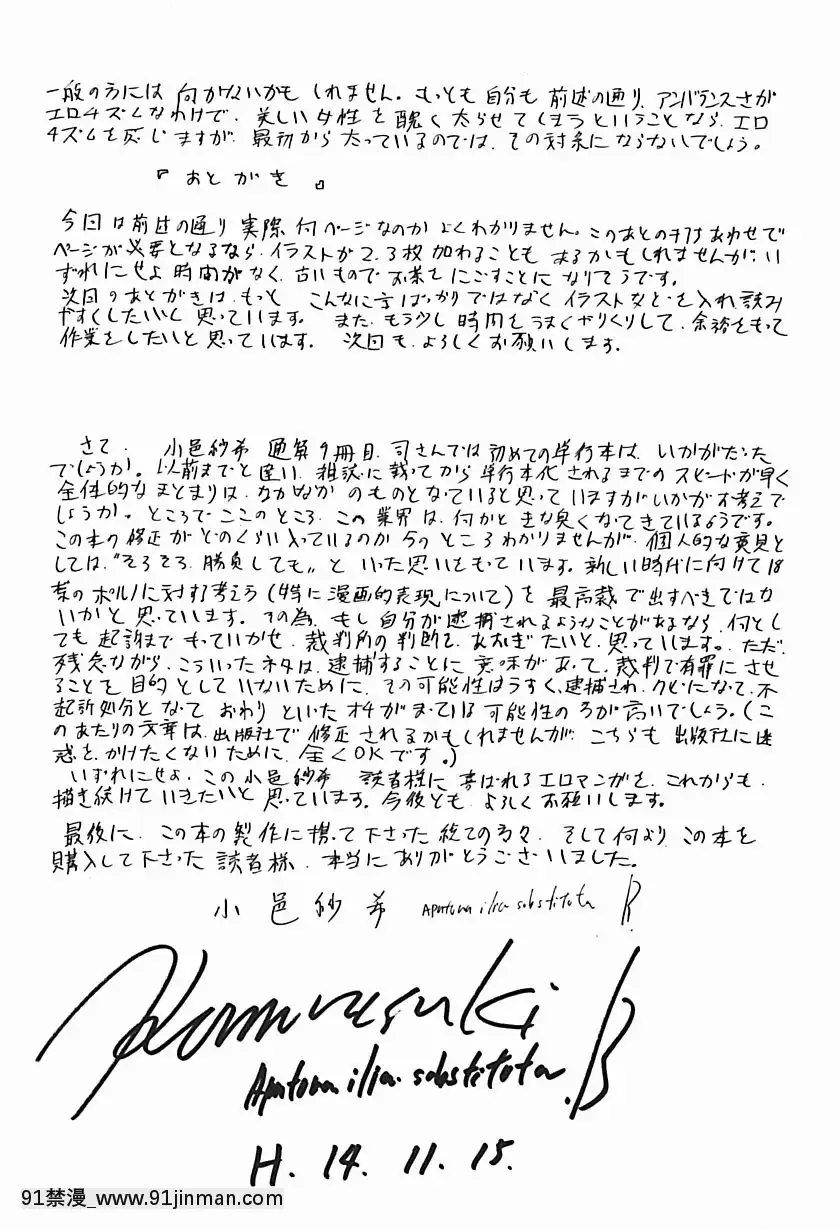 一般の方には 何かないかも しれません。もっとも 自分も 前述の通り、アンバランスさが
エロチズムなわけで、美しい女性を醜く太らせてしまうということなら、エロ
チズムを感じますが、最初から太っているのでは、その対象にならないでしょう。
『おとがき』
今回は前述の通り 実際 何ページなのか よくわかりません。このあとの打ちあわせで
ページが必要となるなら、イラストが2、3枚 加わることも あるかもしれませんが、い
ずれにせよ 時間がなく、古いもので お茶をにごすことに なりそうです。
次回のあとがきは、もっと こんなに字ばっかりではなく イラストなどを入れ、読み
やすくしたいと 思っています。 また、もう少し 時間をうまくやりくりして、余裕をもって
作業をしたいと 思っています。 次回も、よろしくお願いします。
さて、 小邑紗希 通算9冊目、司さんでは 初めての単行本は、いかがだった
でしょうか。以前までと違い、雑誌に載ってから 単行本化されるまでの スピードが早く
全体的なまとまりは、なかなか のものとなっていると思っていますがいかがお考えで
しょうか。ところでここのところ、この業界は、何かと きな臭くなってきているようです。
この本の修正が どのくらい入っているのか 今のところわかりませんが、個人的な意見と
しては、“そろそろ、勝負しても〟といった思いをもっています。新しい時代に向けて18
禁のポルノに対する考えう(特に漫画的表現について)を 最高裁で出すべきではな
いかと思っています。その為、もし自分が逮捕されるようなことがあるなら、何とし
ても 起訴まで もっていかせ、裁判所の判断を、あおぎたいと、思っています。ただ、
残念ながら、こういったネタは、逮捕することに 意味があって、裁判で有罪にさせ
ることを 目的としていないために、その可能性はうすく、逮捕され、クビになって、不
起訴処分となって おわり といったオチがまっている可能性の方が高いでしょう。(こ
のあたりの文章は、出版社で 修正されるかもしれませんが、こちらも 出版社に迷
惑を、かけたくないために、全くOKです。)
いずれにせよ、この小邑紗希 読者様に 喜ばれるエロマンガを、これからも、
描き続けていきたいと思っています。今後とも、よろしくお願いします。
最後に、この本の製作に携って下さった 総ての方々、そして何より、この本を
購入して下さった 読者様、本当にありがとうございました。
小邑紗希 Apatura ilia substituta B
Komurasaki B
Apatura ilia substituta
H. 14. 11. 15.
91禁漫_www.91jinman.com